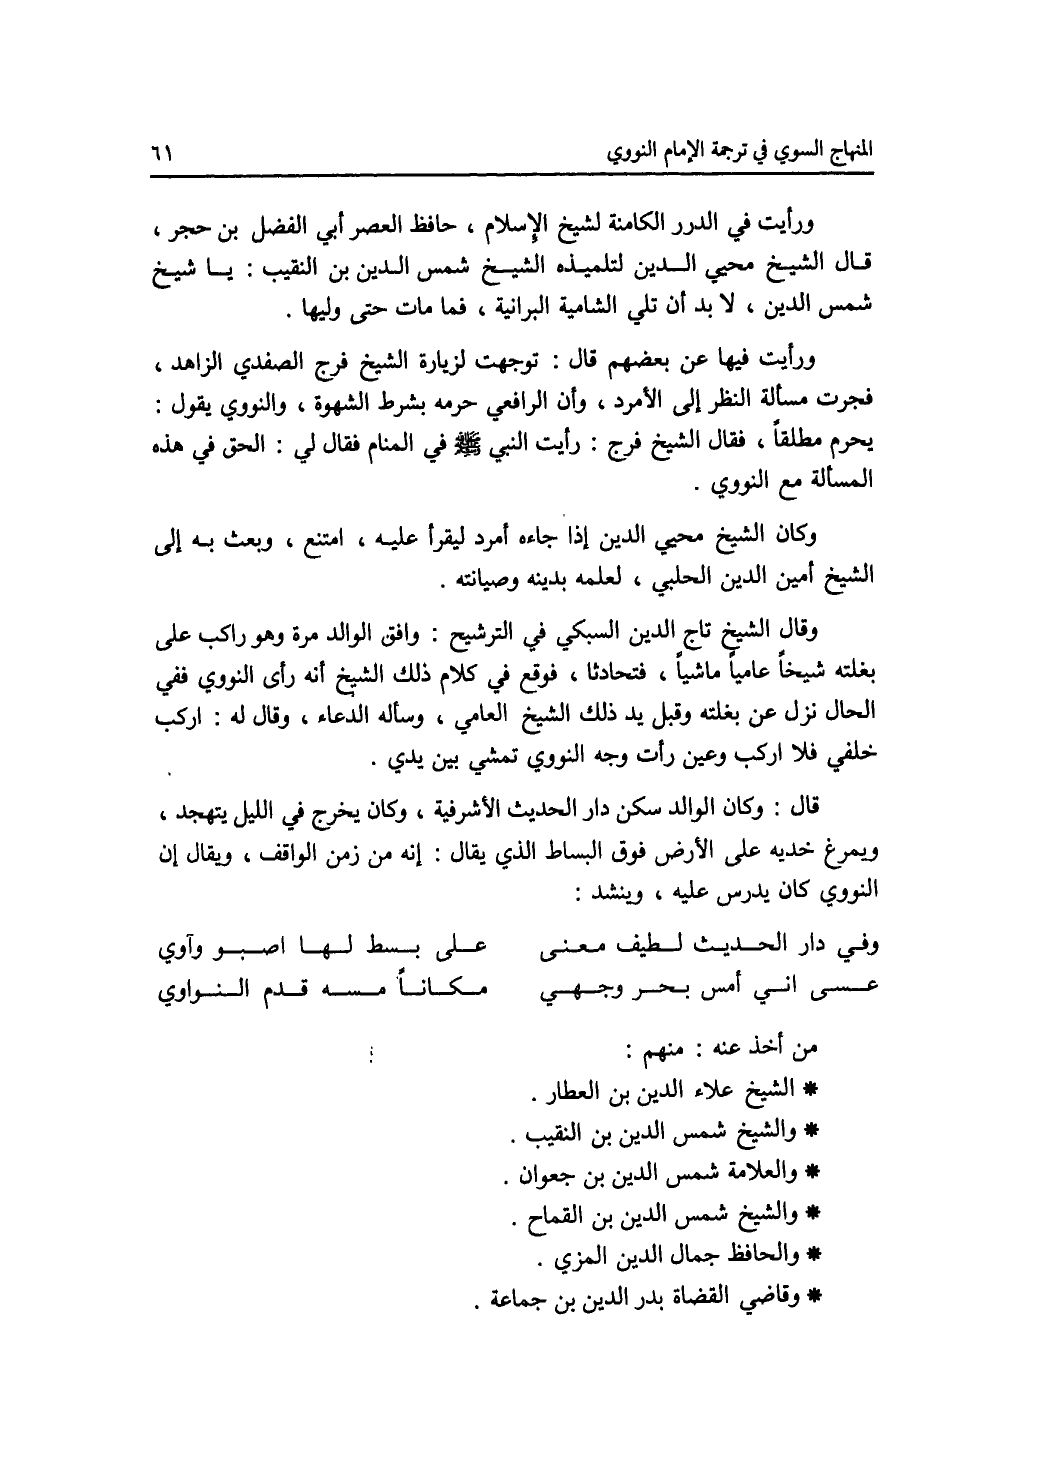 المنهاج السوي في ترجمة الإمام النووي ٦١
ورأيت في الدرر الكامنة لشيخ الإسلام ، حافظ العصر أبي الفضل بن حجر ،
قال الشيخ محيي الدين لتلميذه الشيخ شمس الدين بن النقيب : يا شيخ
شمس الدين ، لا بد أن تلي الشامية البرانية ، فما مات حتى وليها .
ورأيت فيها عن بعضهم قال : توجهت لزيارة الشيخ فرج الصفدي الزاهد ،
فجرت مسألة النظر إلى الأمرد ، وأن الرافعي حرمه بشرط الشهوة ، والنووي يقول :
يحرم مطلقاً ، فقال الشيخ فرج : رأيت النبي ﷺ في المنام فقال لي : الحق في هذه
المسألة مع النووي .
وكان الشيخ محيي الدين إذا جاءه أمرد ليقرأ عليه ، امتنع ، وبعث به إلى
الشيخ أمين الدين الحلبي ، لعلمه بدينه وصيانته .
وقال الشيخ تاج الدين السبكي في الترشيح : وافق الوالد مرة وهو راكب على
بغلته شيخاً عامياً ماشياً ، فتحادثا ، فوقع في كلام ذلك الشيخ أنه رأى النووي ففي
الحال نزل عن بغلته وقبل يد ذلك الشيخ العامي ، وسأله الدعاء ، وقال له : اركب
خلفي فلا اركب وعين رأت وجه النووي تمشي بين يدي .
قال : وكان الوالد سكن دار الحديث الأشرفية ، وكان يخرج في الليل يتهجد ،
ويمرغ خديه على الأرض فوق البساط الذي يقال : إنه من زمن الواقف ، ويقال إن
النووي كان يدرس عليه ، وينشد :
وفي دار الحديث لطيف معنى على بسط لها اصبو وآوي
عسى اني أمس بحر وجهي مكاناً مسه قدم النواوي
من أخذ عنه : منهم :
* الشيخ علاء الدين بن العطار .
* والشيخ شمس الدين بن النقيب .
* والعلامة شمس الدين بن جعوان .
* والشيخ شمس الدين بن القماح .
* والحافظ جمال الدين المزي .
* وقاضي القضاة بدر الدين بن جماعة .